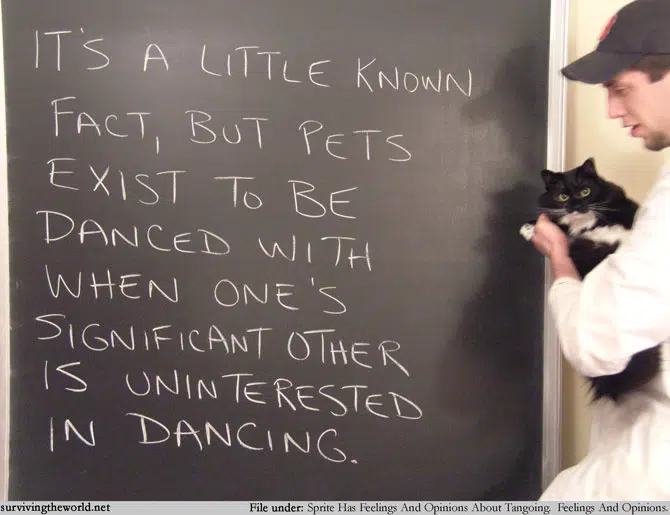 IT'S A LITTLE KNOWN
FACT, BUT PETS
EXIST TO BE
DANCED WITH
WHEN ONE'S
SIGNIFICANT OTHER
IS UNINTERESTED
IN DANCING.
survivingtheworld.net File under: Sprite Has Feelings And Opinions About Tangoing. Feelings And Opinions.